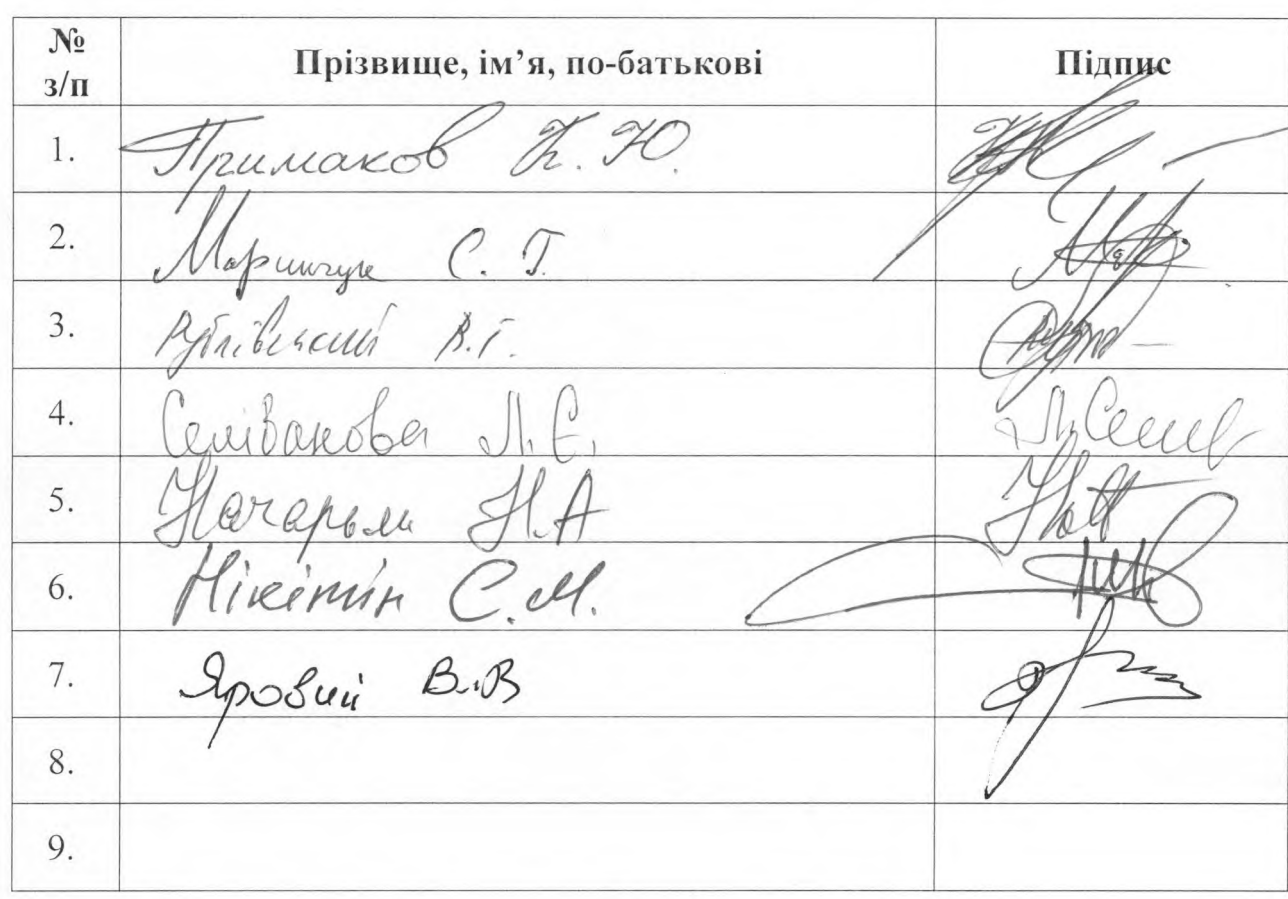 № з/п Прізвище, ім’я, по-батькові Підпис
1. Примаков К. Ю.
2. Маринчук С. Г.
3. В.Г.
4. Селіванова Л. Є. Л. Селів
5. Начарьян Н.А
6. Нікітін С. М.
7. Яровий В.В
8.
9.